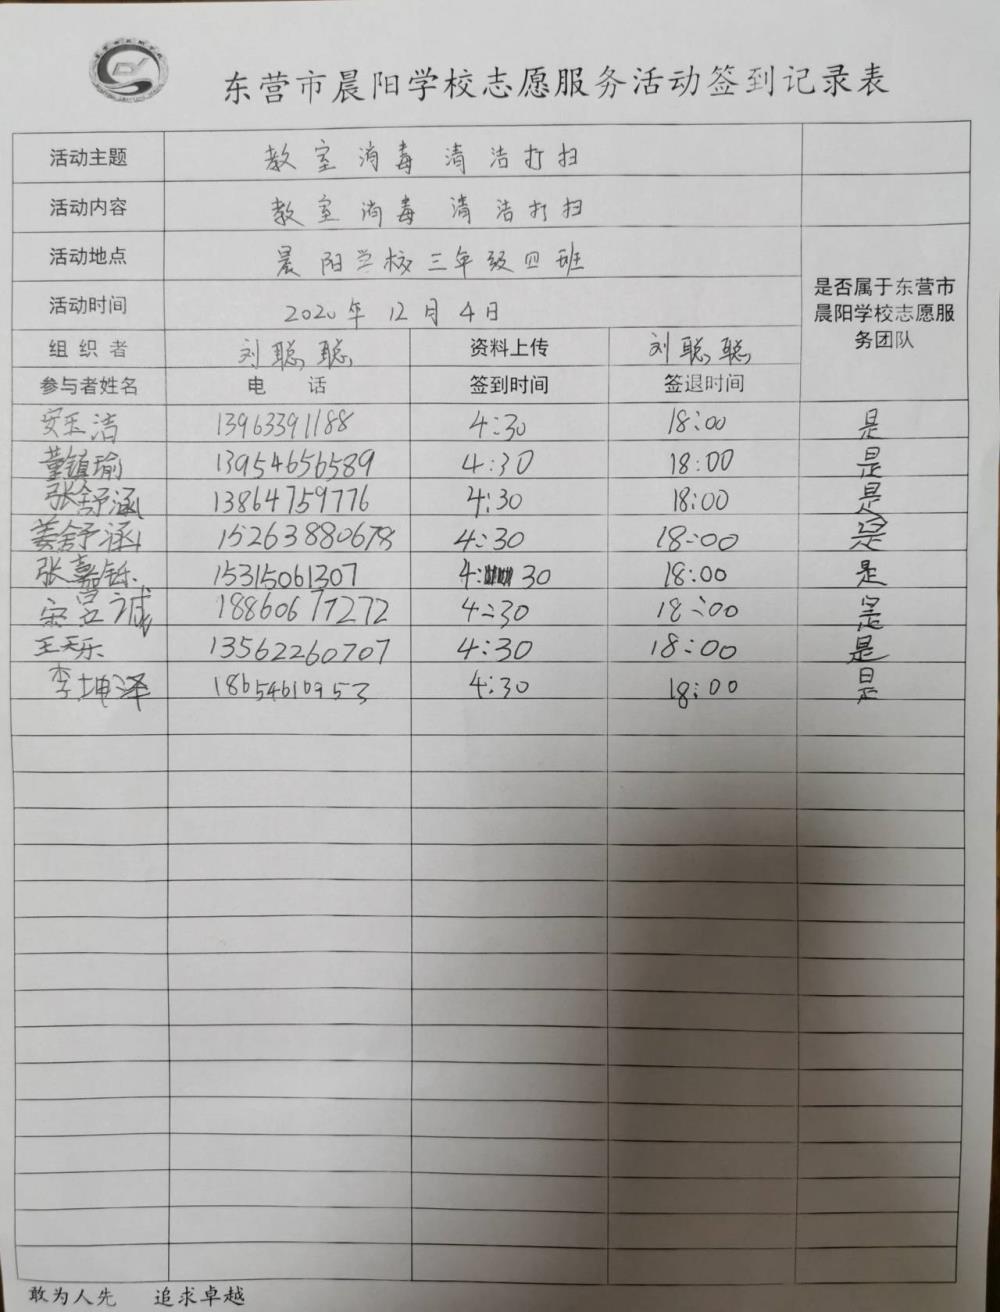 东营市晨阳学校志愿服务活动签到记录表
活动主题 教室消毒 清洁打扫
活动内容 教室消毒 清洁打扫
活动地点 晨阳学校三年级四班
活动时间 2020年12月4日
是否属于东营市
晨阳学校志愿服
务团队
组织者 刘聪聪 资料上传 刘聪聪
参与者姓名 电话 签到时间 签退时间
安玉洁 13963391188 4:30 18:00 是
董镇瑜 13954656589 4:30 18:00 是
张舒涵 13864759776 4:30 18:00 是
姜舒涵 15263880678 4:30 18:00 是
张嘉铄 15315061307 4:30 18:00 是
宋昱诚 18860677272 4:30 18:00 是
王天乐 13562260707 4:30 18:00 是
李坤泽 4:30 18:00 是
敢为人先 追求卓越